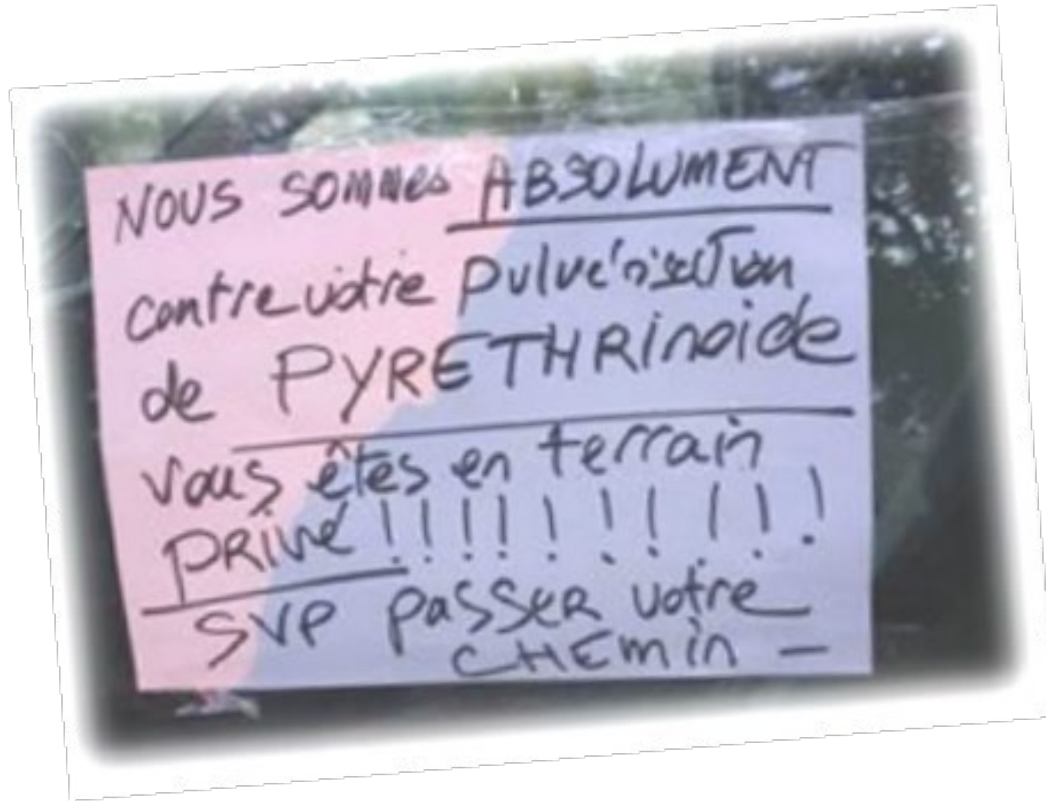 NOUS SOMMES ABSOLUMENT
contre votre pulvérisation
de PYRETHRinoide
vous êtes en terrain
PRivé !!!!!!!!!!
SVP PASSER votre
CHEmin —